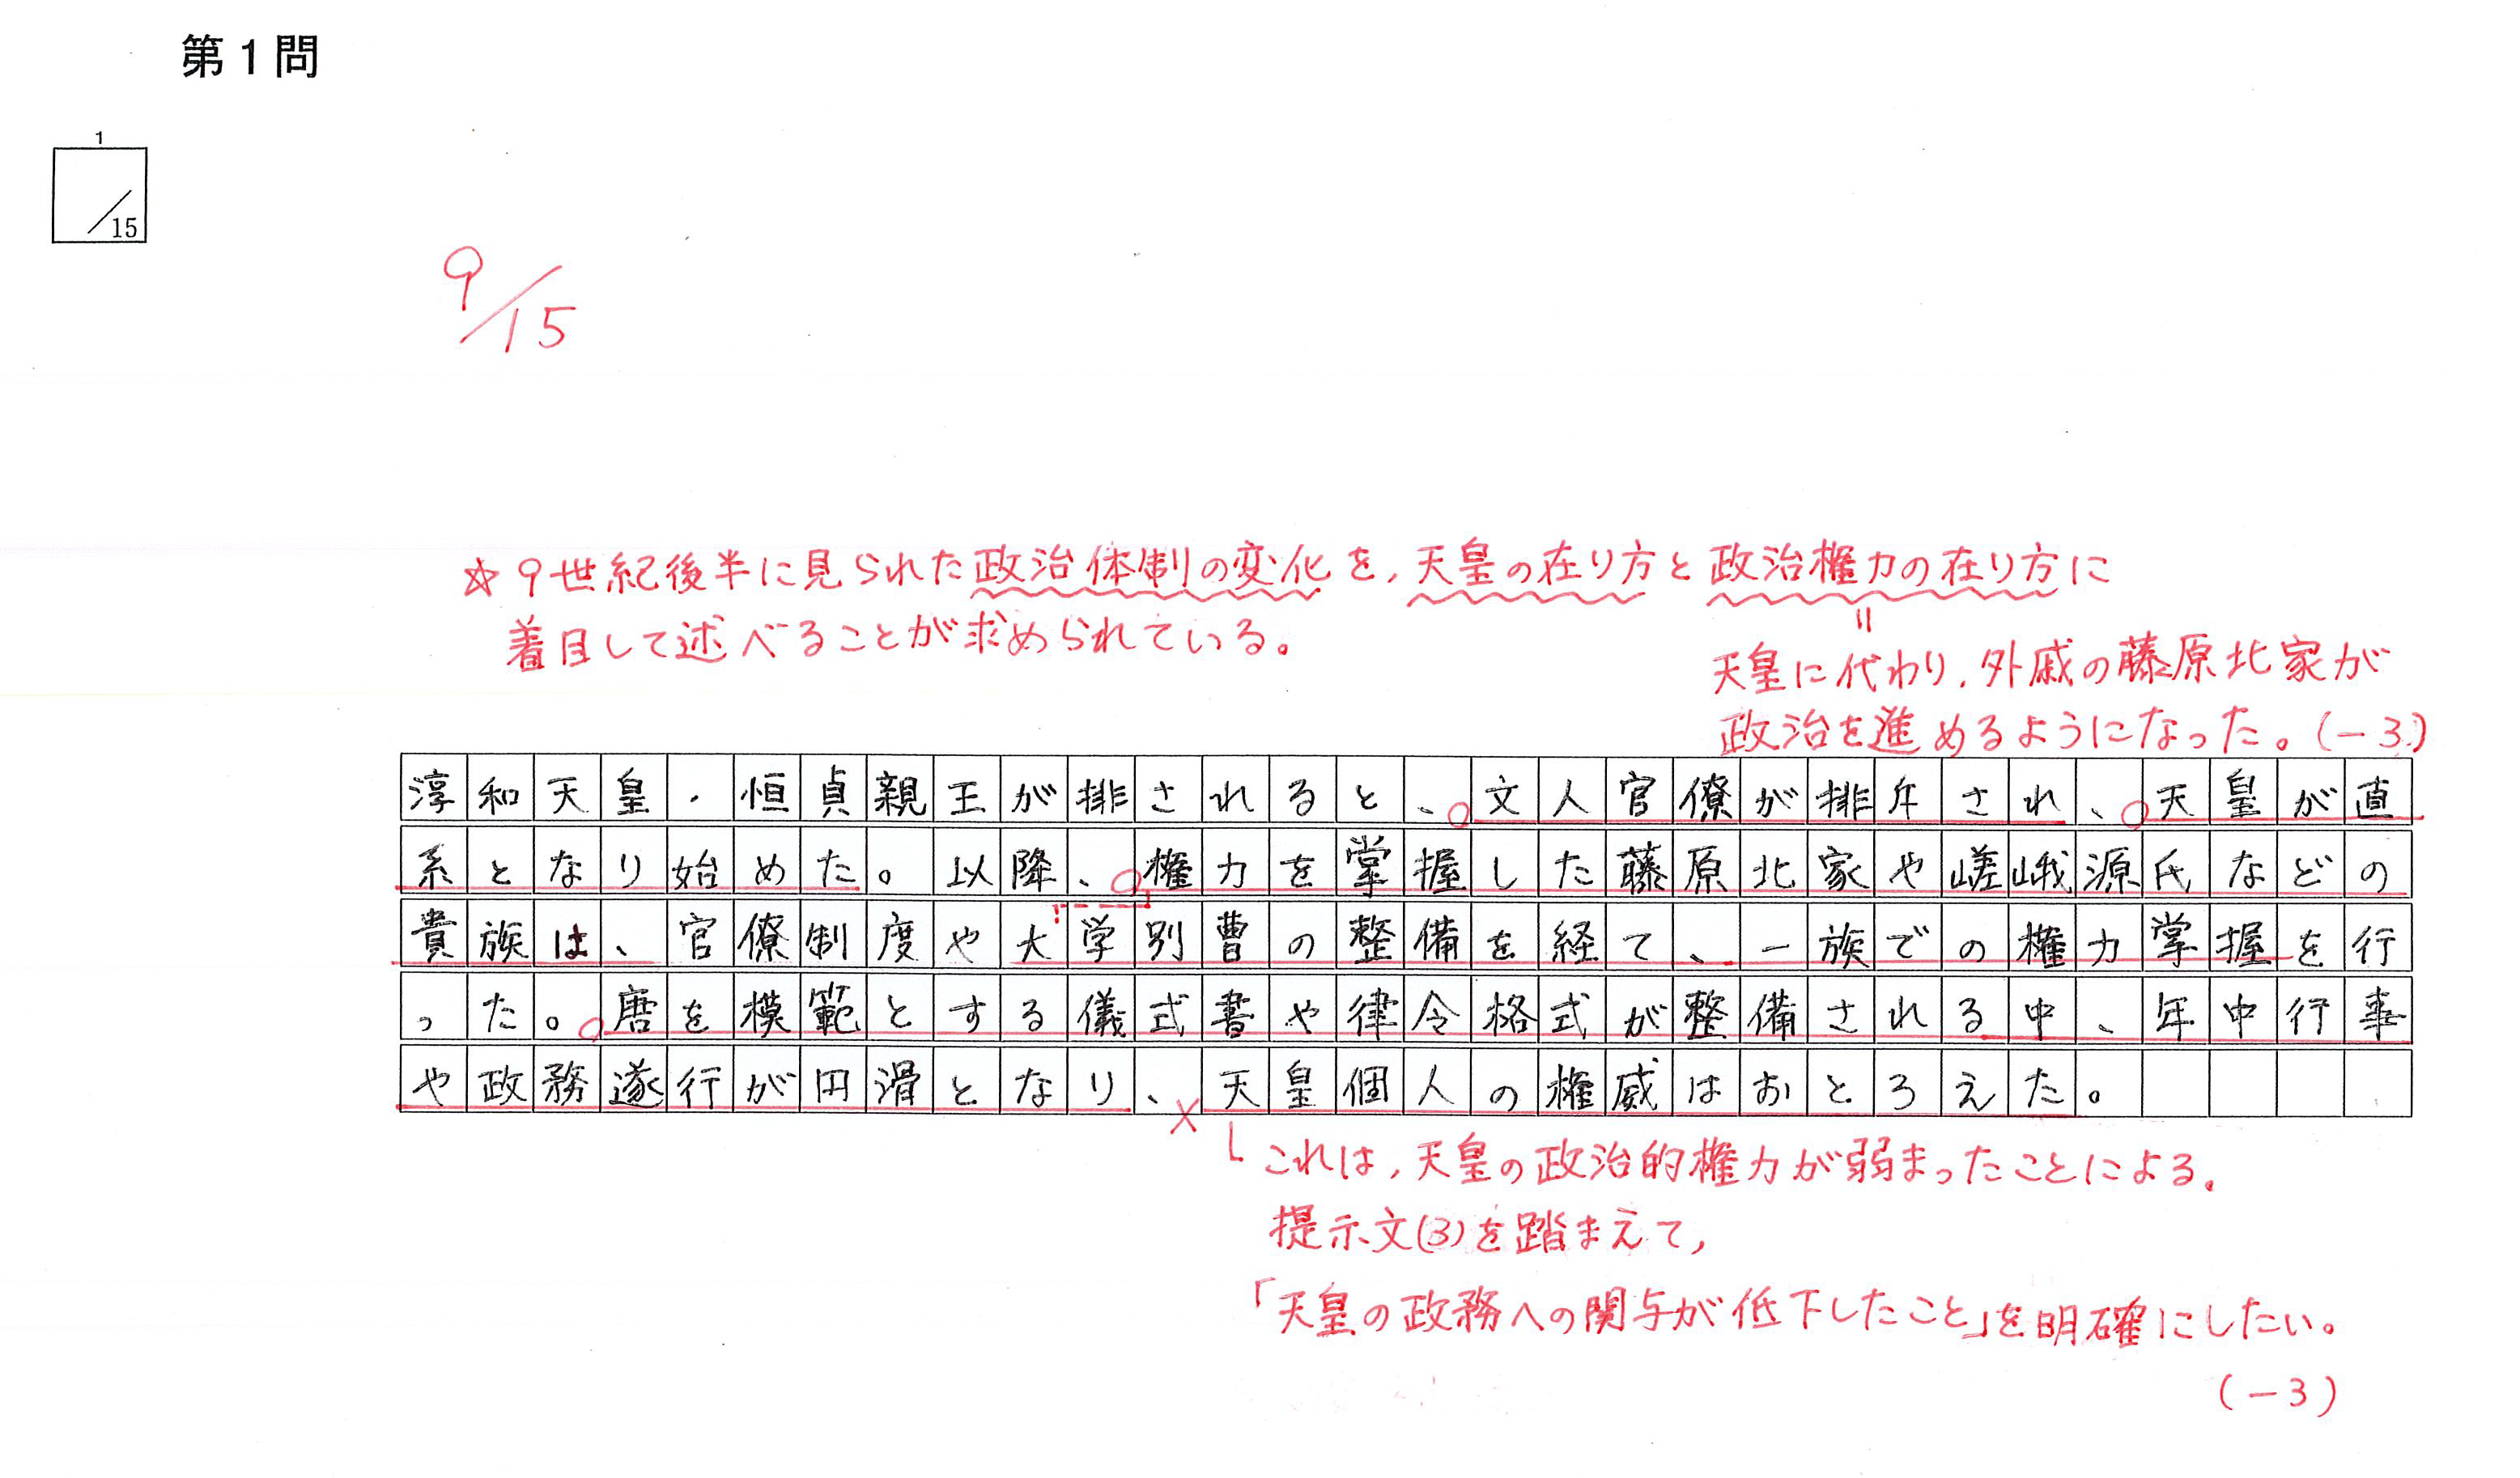 第1問
1
／15
9／15
☆9世紀後半に見られた政治体制の変化を，天皇の在り方と政治権力の在り方に
着目して述べることが求められている。
＝
天皇に代わり，外戚の藤原北家が
政治を進めるようになった。(－3)
淳和天皇・恒貞親王が排されると、文人官僚が排斥され、天皇が直
系となり始めた。以降、権力を掌握した藤原北家や嵯峨源氏などの
貴族は、官僚制度や大学別曹の整備を経て、一族での権力掌握を行
った。唐を模範とする儀式書や律令格式が整備される中、年中行事
や政務遂行が円滑となり、天皇個人の権威はおとろえた。
これは，天皇の政治的権力が弱まったことによる。
提示文(3)を踏まえて，
「天皇の政務への関与が低下したこと」を明確にしたい。
(－3)